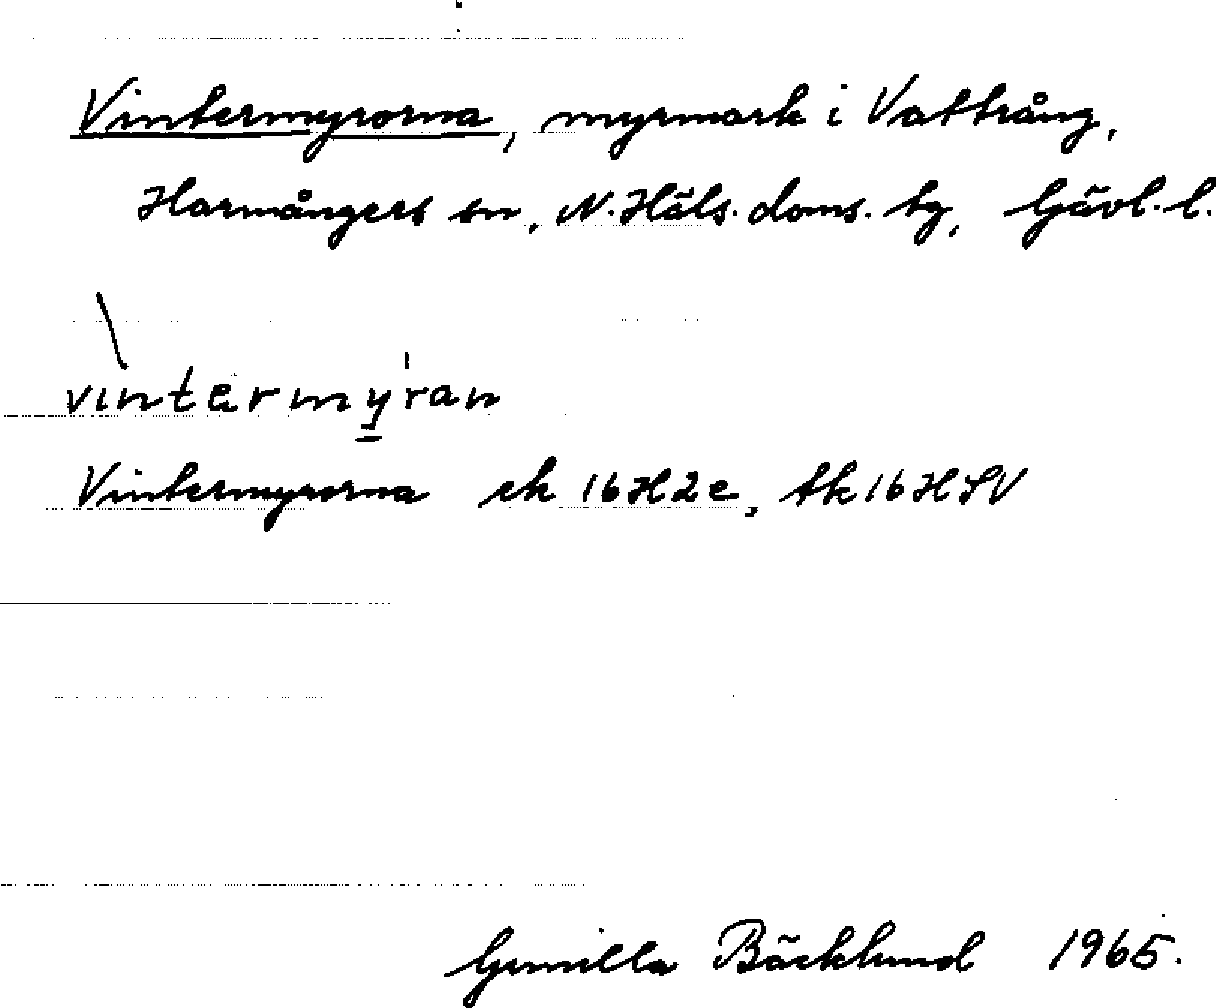 Vintermyrorna, myrmark i Vattrång,
Harmångers sn, N. Häls. doms. tg, Gävl. l.
vintermyran
Vintermyrorna ek 16H2e, tk 16HSV
Gunilla Bäcklund 1965.